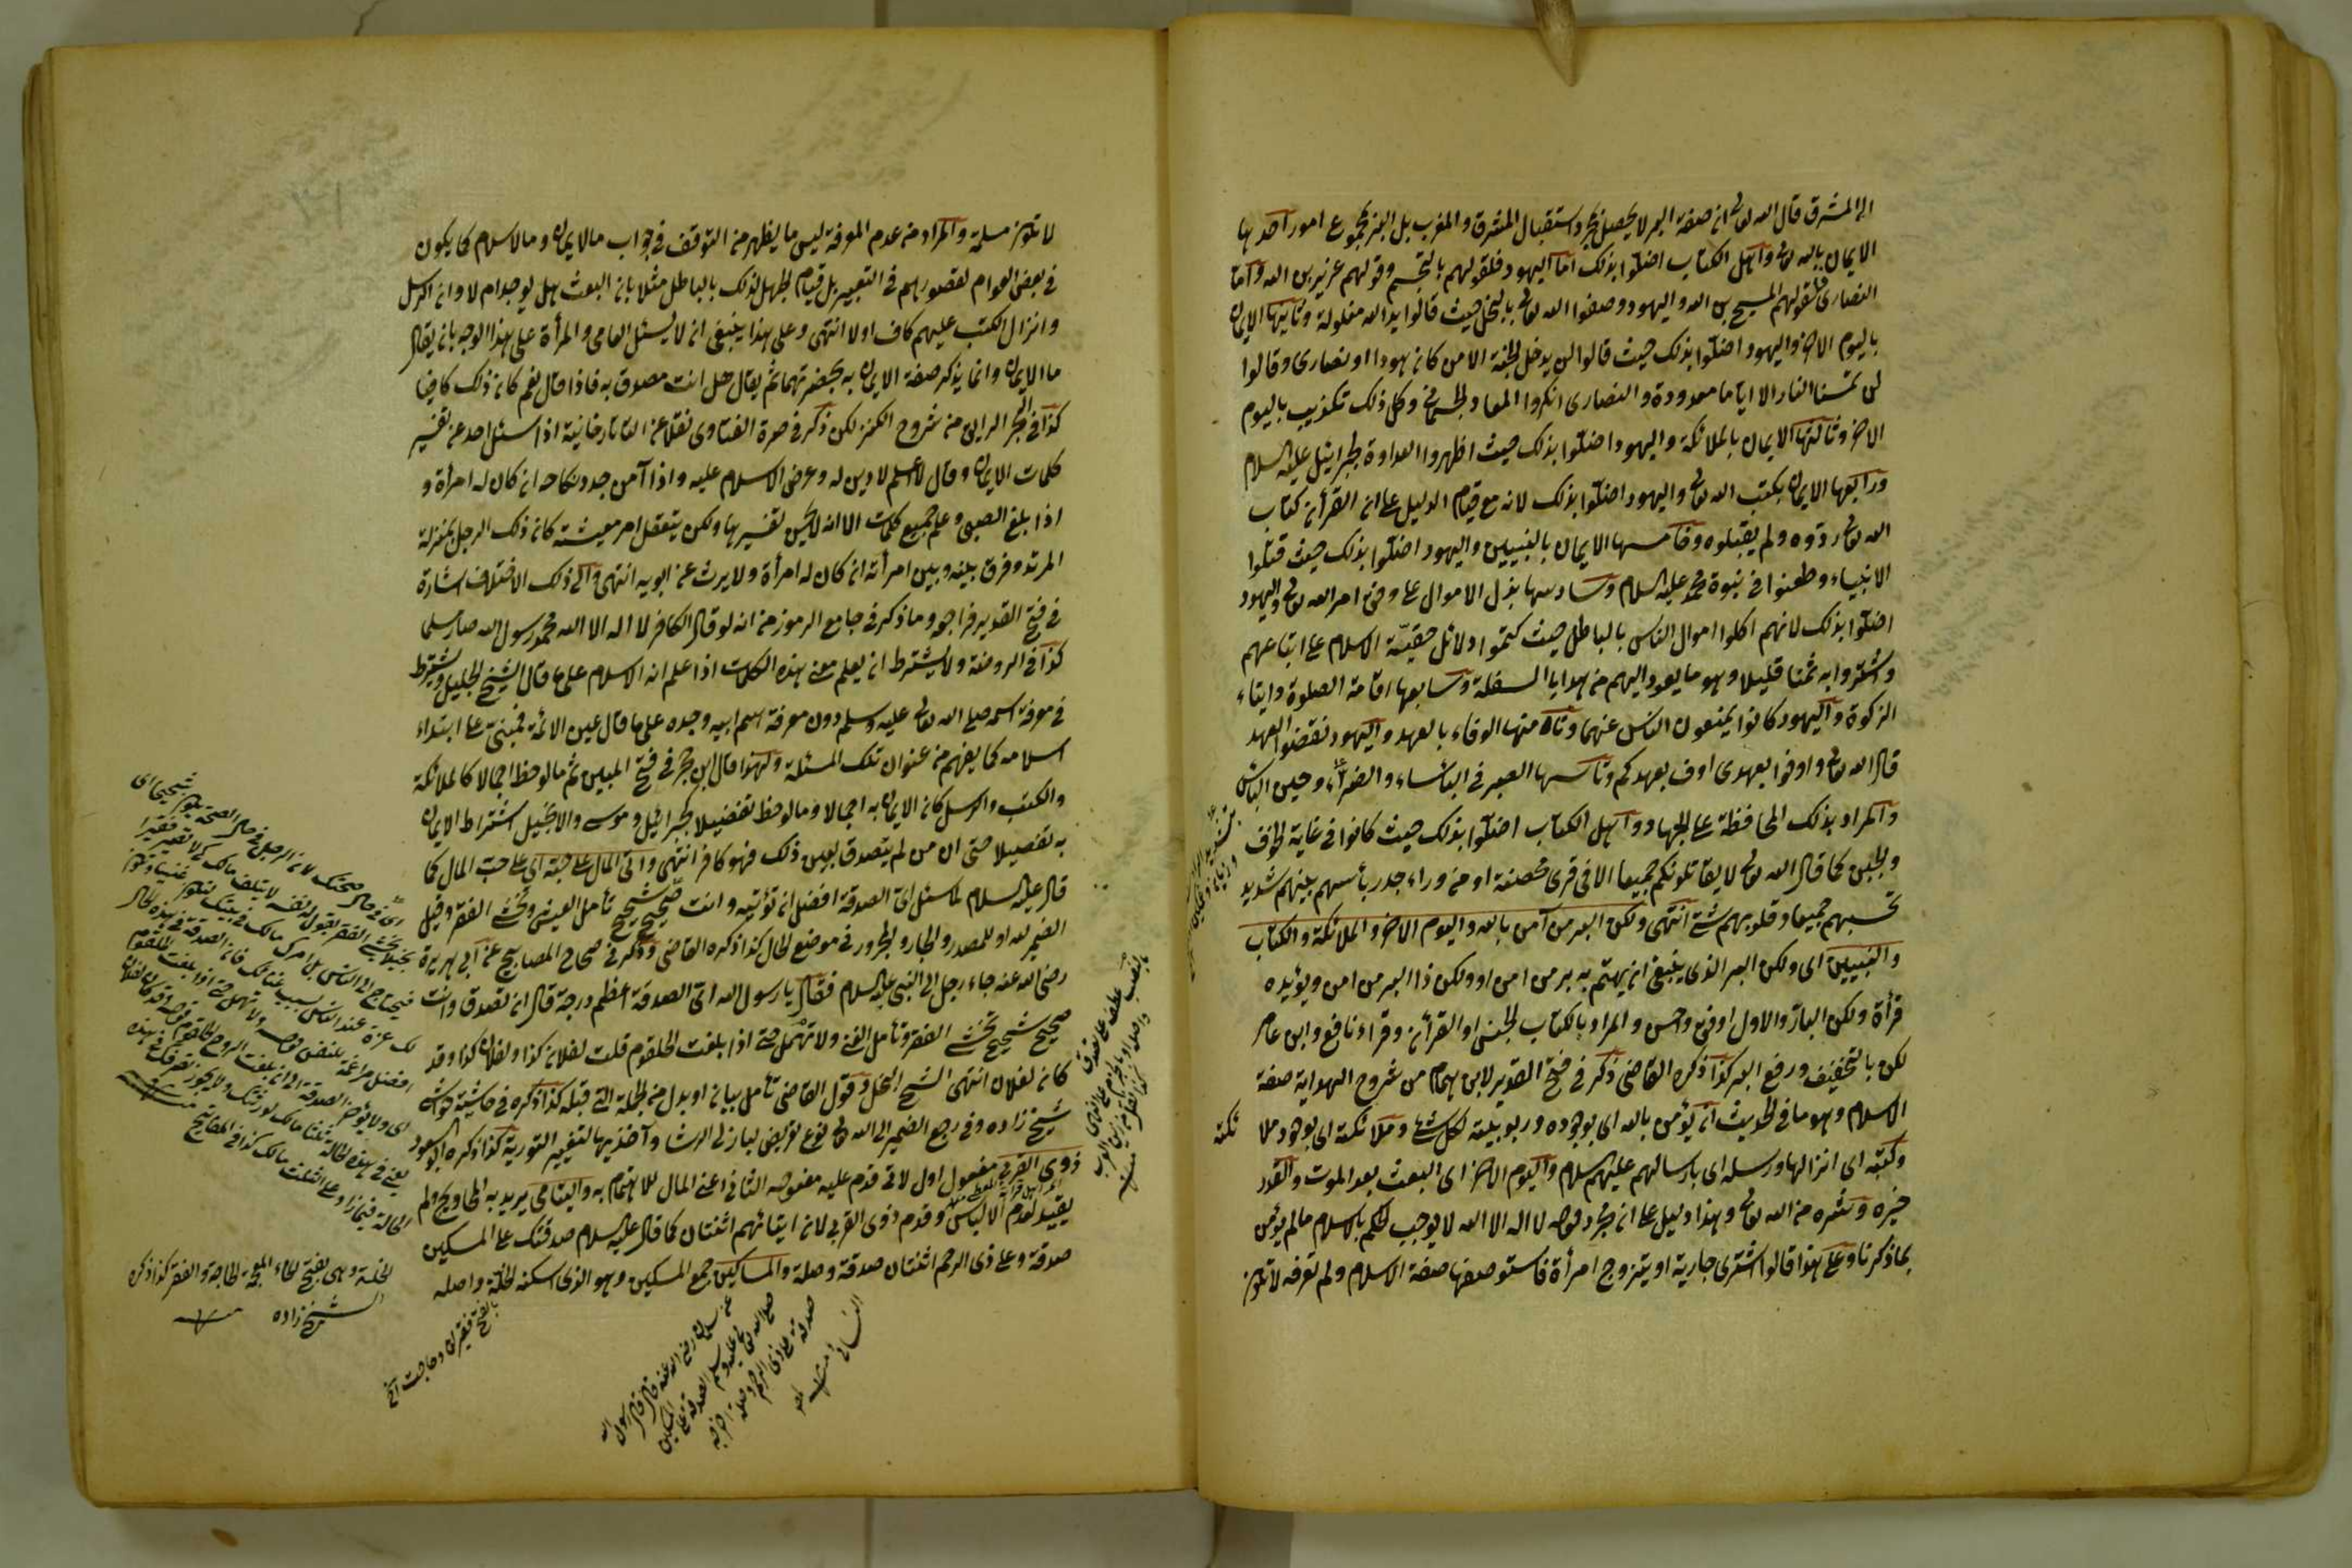 الى المشرق قال الله تعالى ان صفة البر لا يحصل بمجرد استقبال المشرق والمغرب بل البر مجموع امور احدها
الايمان بالله تعالى واهل الكتاب اخلوا بذلك اما اليهود فلقولهم بالتجسم وقولهم عزير بن الله واما
النصارى فلقولهم المسيح بن الله واليهود وصفوا الله تعالى بالبخل حيث قالوا يد الله مغلولة وثانيتها الايمان
باليوم الاخر واليهود اخلوا بذلك حيث قالوا لن يدخل الجنة الا من كان هودا او نصارى وقالوا
لن تمسنا النار الا اياما معدودة والنصارى انكروا المعاد الجسماني وكل ذلك تكذيب باليوم
الاخر وثالثها الايمان بالملائكة واليهود اخلوا بذلك حيث اظهروا العداوة لجبرائيل عليه السلام
ورابعها الايمان بكتب الله تعالى واليهود اخلوا بذلك لانه مع قيام الدليل على ان القرأن كتاب
الله تعالى ردوه ولم يقبلوه وخامسها الايمان بالنبيين واليهود اخلوا بذلك حيث قتلوا
الانبياء وطعنوا في نبوة محمد عليه السلام وسادسها بذل الاموال على وفق امر الله تعالى واليهود
اخلوا بذلك لانهم اكلوا اموال الناس بالباطل حيث كتموا دلائل حقية الاسلام على اتباعهم
واشتروا به ثمنا قليلا وهو ما يعود اليهم من هدايا السفلة وسابعها اقامة الصلوة وايتاء
الزكوة واليهود كانوا يمنعون الناس عنهما وثامنها الوفاء بالعهد واليهود نقضوا العهد
قال الله تعالى واوفوا بعهدى اوف بعهدكم وتاسعها الصبر في البأساء والضراء وحين البأس
والمراد بذلك المحافظة على الجهاد واهل الكتاب اخلوا بذلك حيث كانوا في غاية الخوف
والجبن كما قال الله تعالى لا يقاتلونكم جميعا الا في قرى محصنة او من وراء جدر بأسهم بينهم شديد
تحسبهم جميعا وقلوبهم شتى انتهى ولكن البر من آمن بالله واليوم الاخر والملائكة والكتاب
والنبيين اى ولكن البر الذى ينبغي ان يهتم به بر من امن او ولكن ذا البر من امن ويؤيده
قرأة ولكن البار والاول اوفق واحسن والمراد بالكتاب الجنس او القرأن وقراء نافع وابن عامر
لكن بالتخفيف ورفع البر كذا ذكره القاضي ذكر في فتح القدير لابن همام من شروح الهداية صفة
الاسلام وهو ما في الحديث ان يؤمن بالله اى بوجوده وربوبيته لكل شئ وملائكته اى بوجود ملائكته
وكتبه اى انزالها ورسله اى بارسالهم عليهم السلام واليوم الاخر اى البعث بعد الموت والقدر
خيره وشره من الله تعالى وهذا دليل على ان مجرد قوله لا اله الا الله لا يوجب الحكم بالاسلام ما لم يؤمن
بما ذكرنا وعلى هذا قالوا اشترى جارية او يتزوج امرأة فاستوصفها صفة الاسلام ولم تعرفه لا تكون
لا تكون مسلمة والمراد من عدم المعرفة ليس ما يظهر من التوقف في جواب ما الايمان وما الاسلام كما يكون
في بعض العوام لقصورهم في التعبير بل قيام الجهل بذلك بالباطل مثلا بان البعث هل يوجد ام لا وان الرسل
وانزال الكتب عليهم كاف اولا انتهى وعلى هذا ينبغي ان لا يسئل العامى والمرأة على هذا الوجه بان يقال
ما الايمان وانما يذكر صفة الايمان به بحضرتهما ثم يقال هل انت مصدق به فاذا قال نعم كان ذلك كافيا
كذا في البحر الرايق من شروح الكنز لكن ذكر في صرة الفتاوى نقلا عن التاتارخانية اذا اسئل احد عن تفسير
كلمات الايمان وقال لا اعلم لا دين له وعرض الاسلام عليه واذا آمن جدد نكاحه ان كان له امرأة و
اذا بلغ الصبى وعلم جميع كلمات الا انه لا يحسن تفسيرها ولكن يتعقل امر معيشته كان ذلك الرجل بمنزلة
المرتد وفرق بينه وبين امرأته ان كان له امرأة ولا يرث عن ابويه انتهى والى ذلك الاختلاف اشارة
في فتح القدير فراجعه وما ذكر في جامع الرموز من انه لو قال الكافر لا اله الا الله محمد رسول الله صار مسلما
كذا في الروضة ولا يشترط ان يعلم معنى هذه الكلمات اذا علم انه الاسلام على ما قال الشيخ الجليل ويشترط
في معرفة اسمه صلى الله تعالى عليه وسلم دون معرفة اسم ابيه وجده على ما قال عين الائمة فمبنى على ابتداء
اسلامه كما يفهم من عنوان تلك المسئلة ولهذا قال ابن حجر في فتح المبين ثم ما لوحظ اجمالا كالملائكة
والكتب والرسل كان الايمان به اجمالا وما لوحظ تفضيلا كجبرائيل وموسى والانجيل اشتراط الايمان
به تفصيلا حتى ان من لم يتصدق بعين ذلك فهو كافر انتهى واتى المال على حبه اى على حب المال كما
قال عليه السلام لما سئل اى الصدقة افضل ان تؤتيه وانت صحيح شحيح تأمل العيش وتخشى الفقر وقيل
الضمير لله او للمصدر والجار والمجرور في موضع الحال كذا ذكره القاضي وذكر في صحاح المصابيح عن ابى هريرة
رضى الله عنه جاء رجل الى النبى عليه السلام فقال يا رسول الله اى الصدقة اعظم درجة قال ان تصدق وانت
صحيح شحيح تخشى الفقر وتأمل الغنى ولا تمهل حتى اذا بلغت الحلقوم قلت لفلان كذا ولفلان كذا وقد
كان لفلان انتهى الشح البخل وقول القاضي تأمل بيان او بدل من الجملة التى قبله كذا ذكره في حاشيته
شيخ زاده وفي رجع الضمير الى الله تعالى نوع تعريض لباذل الرشا وآخذيها لتغيير التورية كذا ذكره ابو السعود
ذوى القربى مفعول اول لاتى قدم عليه مفعوله الثانى اعنى المال للاهتمام به واليتامى يريد به المحاويج ولم
يقيد لعدم الالباس وقدم ذوى القربى لان ايتائهم اثنتان كما قال عليه السلام صدقتك على المسكين
صدقة وعلى ذى الرحم اثنتان صدقة وصلة والمساكين جمع المسكين وهو الذى اسكنه الخلة واصله
الخلة وهى بفتح الخاء المعجمة الحاجة والفقر كذا ذكره
الشيخ زاده